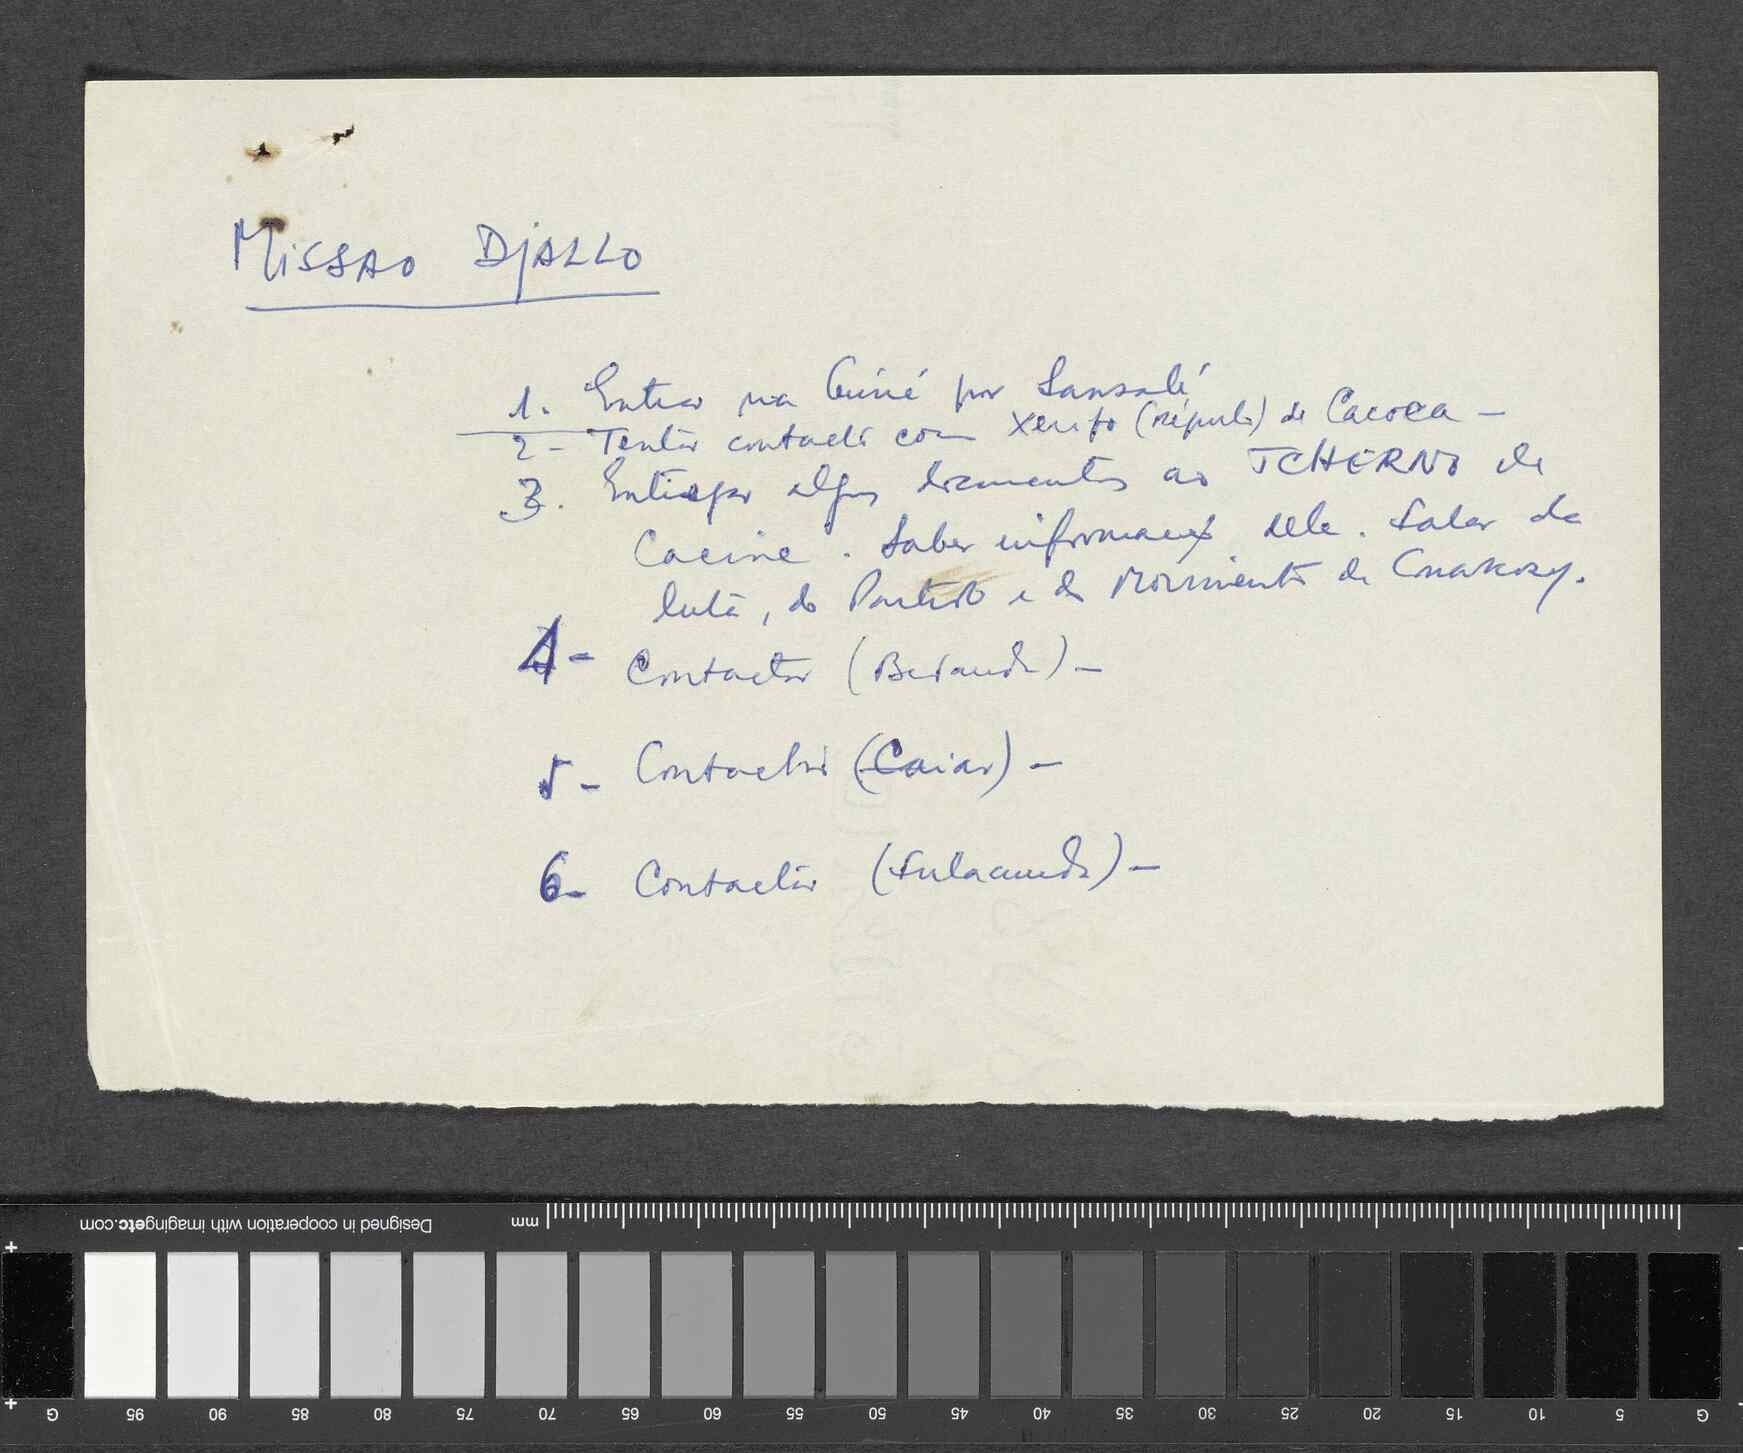 MISSAO DJALLO
1. Entrar na Guiné por Sansalé
2- Tentar contacto com Xerifo (régulo) de Cacoca -
3. Entregar alguns documentos ao TCHERNO de
Cacine. Saber informações dele. Falar da
luta, do Partido e do Movimento de Conakry.
4- Contactar (Bedanda) -
5- Contactar (Caiar) -
6- Contactar (Fulacunda) -
Designed in cooperation with imagingetc.com
mm
G 95 90 85 80 75 70 65 60 55 50 45 40 35 30 25 20 15 10 5 G